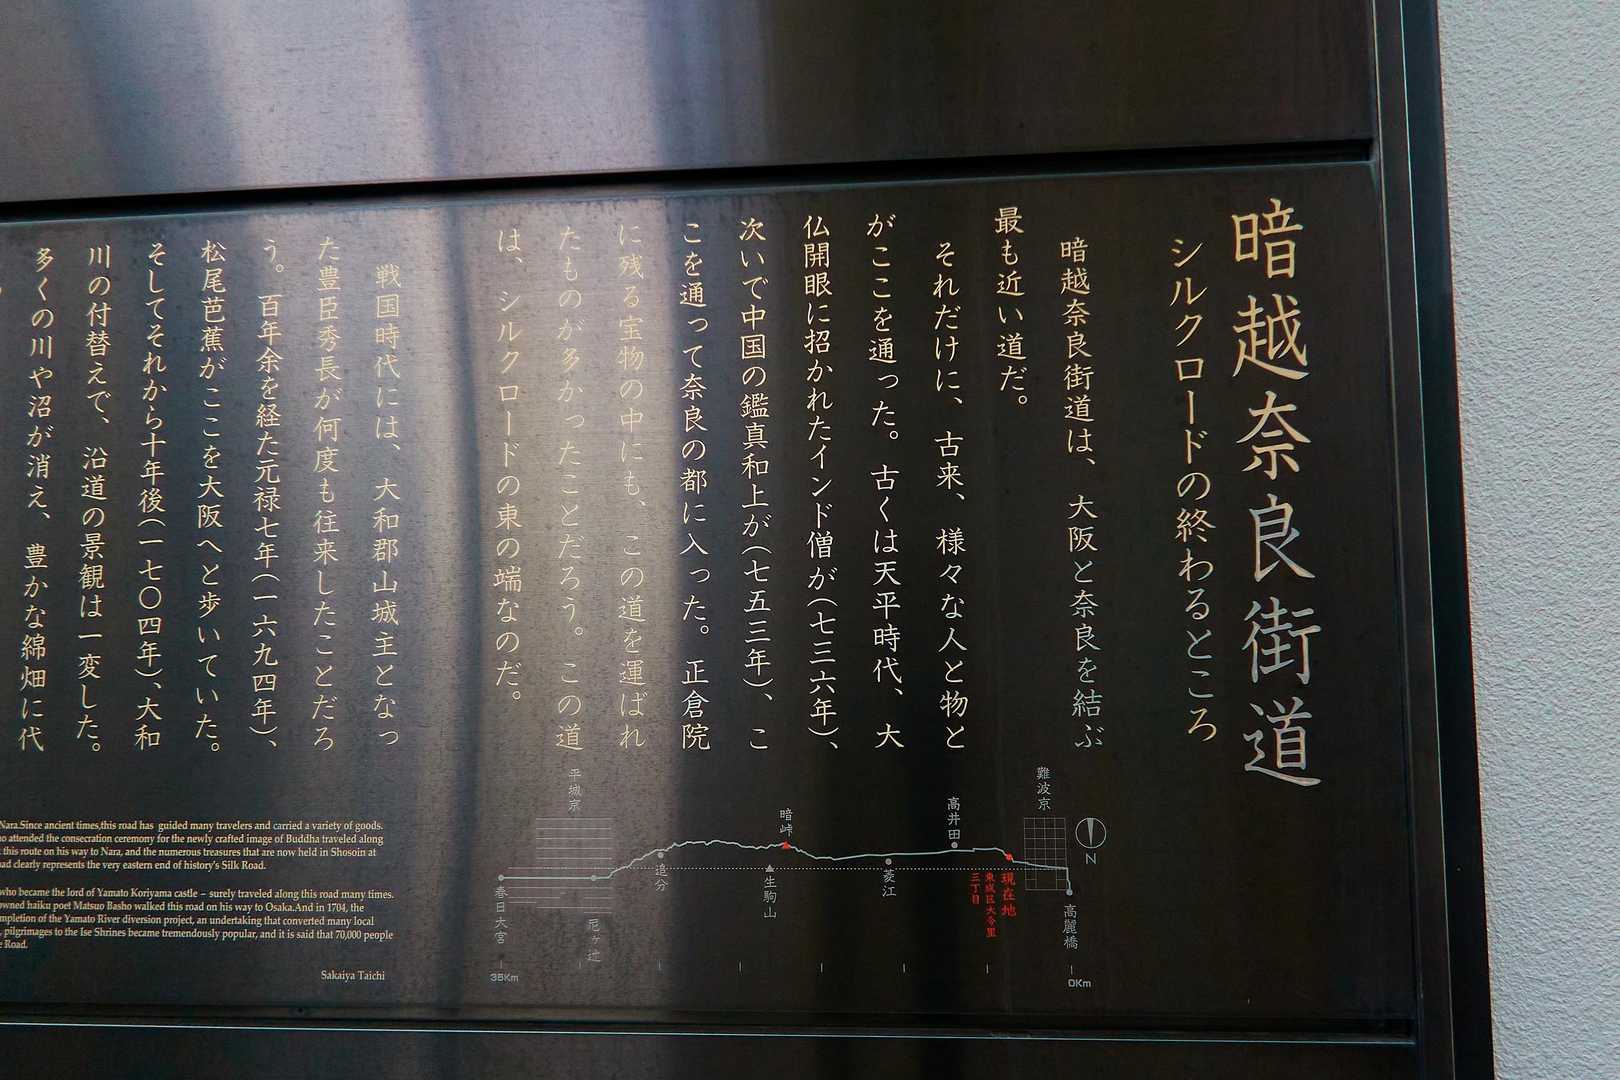 暗越奈良街道
シルクロードの終わるところ
暗越奈良街道は、大阪と奈良を結ぶ
最も近い道だ。
それだけに、古来、様々な人と物と
がここを通った。古くは天平時代、大
仏開眼に招かれたインド僧が(七三六年)、
次いで中国の鑑真和上が(七五三年)、こ
こを通って奈良の都に入った。正倉院
に残る宝物の中にも、この道を運ばれ
たものが多かったことだろう。この道
は、シルクロードの東の端なのだ。
戦国時代には、大和郡山城主となっ
た豊臣秀長が何度も往来したことだろ
う。百年余を経た元禄七年(一六九四年)、
松尾芭蕉がここを大阪へと歩いていた。
そしてそれから十年後(一七〇四年)、大和
川の付替えで、沿道の景観は一変した。
多くの川や沼が消え、豊かな綿畑に代
難波京
高井田
暗峠
平城京
N
高麗橋
現在地
東成区大今里
三丁目
菱江
生駒山
追分
尼ヶ辻
春日大宮
0Km
35Km
Nara.Since ancient times,this road has guided many travelers and carried a variety of goods.
o attended the consecration ceremony for the newly crafted image of Buddha traveled along
this route on his way to Nara, and the numerous treasures that are now held in Shosoin at
ad clearly represents the very eastern end of history's Silk Road.
who became the lord of Yamato Koriyama castle – surely traveled along this road many times.
owned haiku poet Matsuo Basho walked this road on his way to Osaka.And in 1704, the
mpletion of the Yamato River diversion project, an undertaking that converted many local
, pilgrimages to the Ise Shrines became tremendously popular, and it is said that 70,000 people
e Road.
Sakaiya Taichi